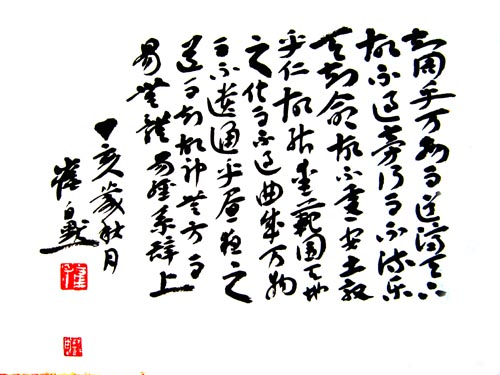 知周乎万物而道濟天下
故不過旁行而不流樂
天知命故不憂安土敦
乎仁故能愛範圍天地
之化而不過曲成万物
而不遺通乎晝夜之
道而知故神無方而
易無體易經系辭上
丁亥歲秋月
崔自默
崔